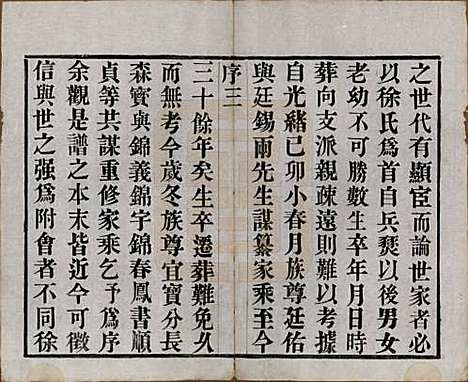 之世代有顯宦而論世家者必
以徐氏爲首自兵燹以後男女
老幼不可勝數生卒年月日時
葬向支派親疎遠則難以考據
自光緒己卯小春月族尊廷佑
與廷錫兩先生謀纂家乘至今
序三
三十餘年矣生卒遷葬難免久
而無考今歲冬族尊宜寶分長
森寶與錦義錦字錦春鳳書順
貞等共謀重修家乘乞予爲序
余觀是譜之本末皆近今可徵
信與世之强爲附會者不同徐